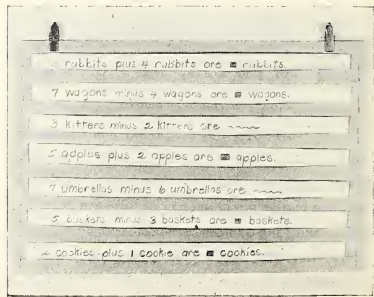 rabbits plus 4 rabbits are ■ rabbits.
7 wagons minus 4 wagons are ■ wagons.
3 kittens minus 2 kittens are ~~~~
5 apples plus 2 apples are ■ apples.
7 umbrellas minus 6 umbrellas are ~~~~
5 baskets minus 3 baskets are ■ baskets.
cookies plus 1 cookie are ■ cookies.